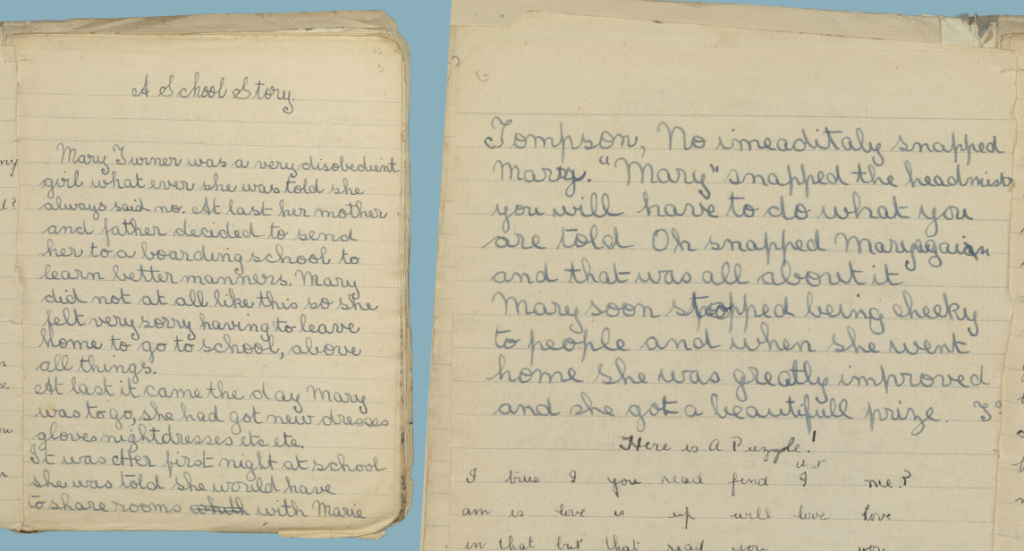 A School Story
Mary Turner was a very disobedient
girl what ever she was told she
always said no. At last her mother
and father decided to send
her to a boarding school to
learn better manners. Mary
did not at all like this so she
felt very sorry having to leave
home to go to school, above
all things.
At last it came the day Mary
was to go, she had got new dresses
gloves nightdresses etc etc.
It was her first night at school
she was told she would have
to share rooms with Marie
Tompson, No imeaditaly snapped
Mary. "Mary" snapped the headmist
you will have to do what you
are told Oh snapped Mary again
and that was all about it
Mary soon stopped being cheeky
to people and when she went
home she was greatly improved
and she got a beautifull prize.
Here is A Puzzle!
that
I true I you read find I me?
am is love is up will love love
in that but that read you you